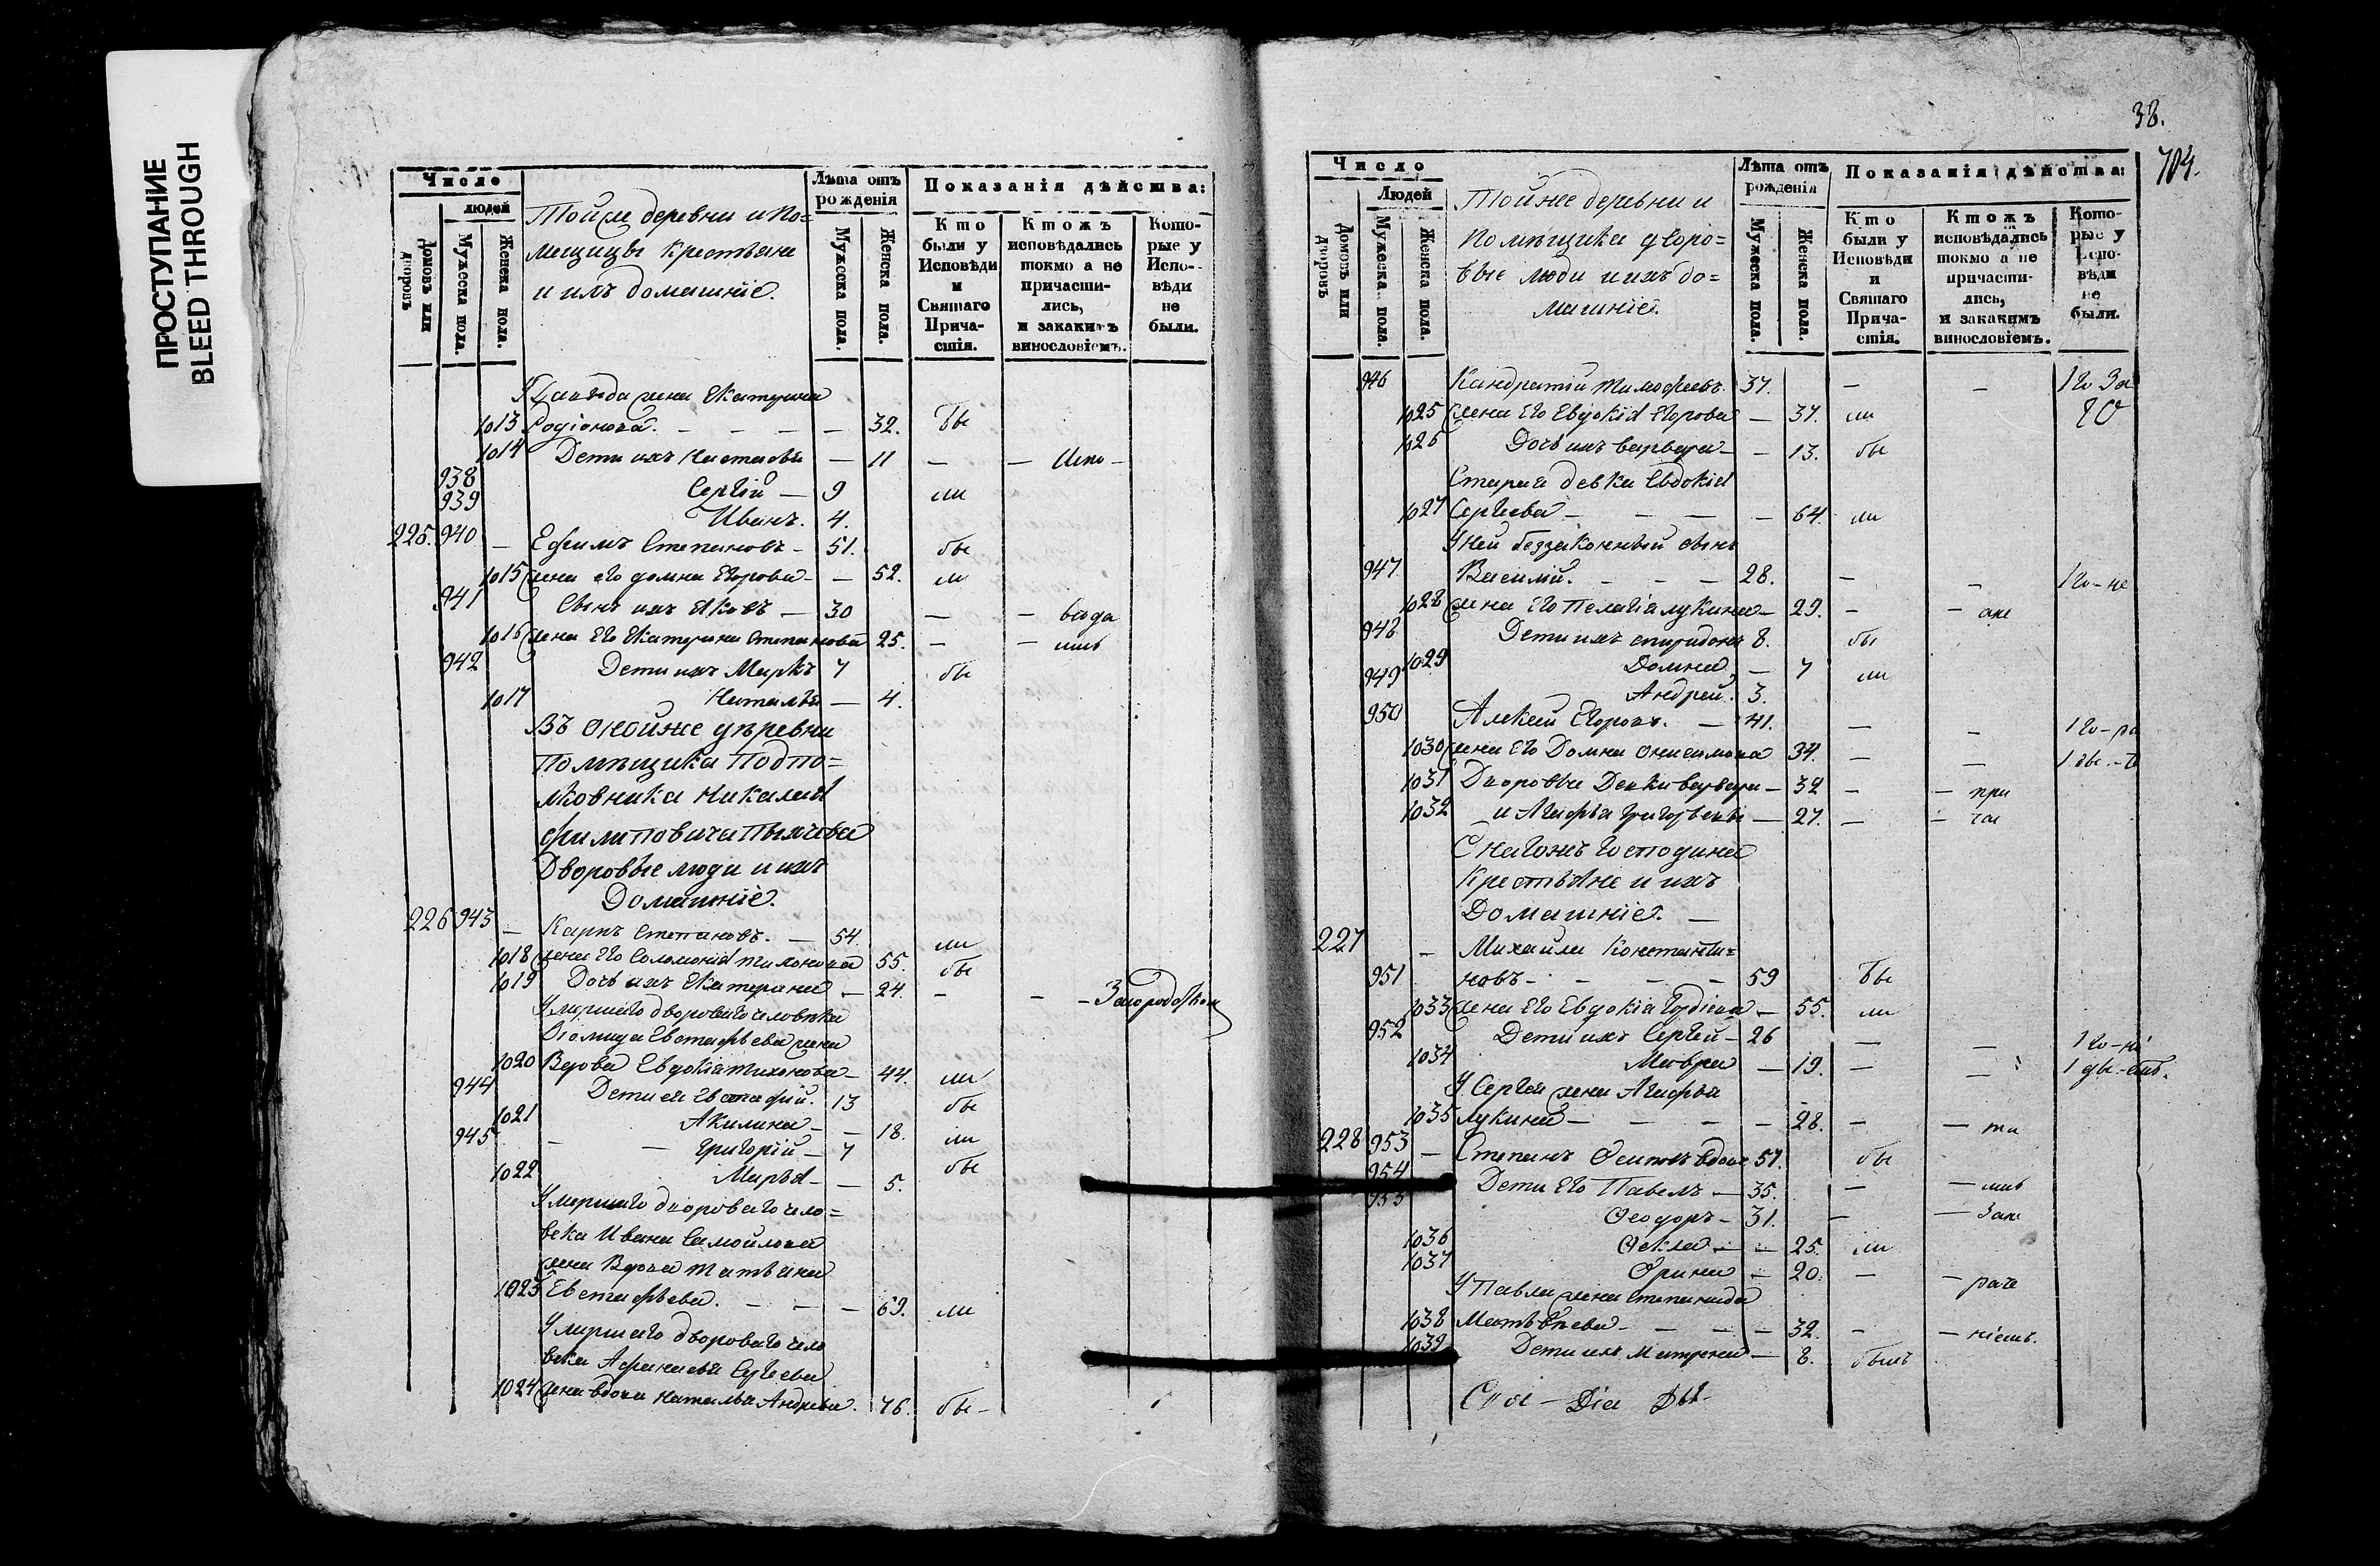 ПРОСТУПАНИЕ
BLEED THROUGH
Число
людей
Домовъ или дворовъ
Мужеска пола.
Женска пола.
Тойже деревни и по=
мещицы крестьяне
и ихъ домашніе.
Лѣта отъ рожденія
Мужеска пола.
Женска пола.
Показанія дѣйства:
Кто были у Исповѣди и Святаго Причастія.
Ктожъ исповѣдались токмо а не причастились, и закакимъ винословіемъ.
Которые у Исповѣди не были.
У жена Екатерина
1013 Родіонова. — — — — 32. бы
1014 Дети ихъ Настасья — 11 — — Испо —
938 Сергій — 9 ли
939 Иванъ. 4.
225. 940 — Ефимъ Степановъ — 51. бы
1015 жена его домна Егорова — — 52. ли
941 Сынъ ихъ Яковъ — 30 — —
1016 жена Его Екатерина Степанова 25. — —
942 Дети ихъ Маркъ 7 бы
1017 Наталья — 4.
Въ онойже деревни
Помѣщика Подпо=
лковника Николая
филиповича
Дворовые люди и ихъ
Домашніе.
226 943 — Карпъ Степановъ. — 54. ли
1018 жена Его Соломонія 55. бы
1019 Дочь ихъ Екатерина — 24. — —
Умершаго двороваго человѣка
Діомида Евстафьева жена
1020 Вдова Евдокія тихонова — 44. ли
944 Дети ея Евстафій. 13 бы
1021 Акилина — — 18. ли
945 — — Григорій — 7 бы
1022 Марья — — 5.
Умершаго двороваго чело=
века Ивана Самойлова
жена Вдова татьяна
1023 Евстафьева. — — — 69. ли
Умершаго двороваго чело
века Афанасья Сергеева
1024 жена вдова Наталья Андреева. 76. бы —
38.
704.
Число
Людей
Домовъ или дворовъ
Мужеска пола.
Женска пола.
Тойже деревни и
помѣщика дворо=
вые люди и ихъ до=
машніе.
Лѣта отъ рожденія
Мужеска пола.
Женска пола.
Показанія дѣйства:
Кто были у Исповѣди и Святаго Причастія.
Ктожъ исповѣдались токмо а не причастились, и закакимъ винословіемъ.
Которые у Исповѣди не были.
946 Кандратій тимофеевъ 37. — —
1025 жена Его Евдокія Егорова — 37. ли
1026 Дочь ихъ варвара — — 13. бы
Старая девка Евдокія
1027 Сергеева — — — — 64. ли
У ней беззаконный сынъ
947 Василій. — — — 28. — —
1028 жена Его Пелагія лукина — 29. — —
948 Дети ихъ спиридонъ 8. бы
1029 Домна — 7 ли
949 Андрей. 3.
950 Алексей Егоровъ. — 41. — —
1030 жена Его Домна онисимова 34. — —
1031 Дворовыя Девки варвара — 32 — — при
1032 и Агафья григорьевы — 27. — —
Онагожъ Господина
Крестьяне и ихъ
Домашніе. —
227 — Михайла Константи=
951 новъ — — — — 59 бы
1033 жена Его Евдокія — 55. ли
952 Дети ихъ Сергей — 26 — —
1034 Мавра — 19. — —
У Сергея жена Агафья
1035 лукина — — — — 28. — —
228 953 — Степанъ Осиповъ вдовъ 57. бы
954 Дети Его Павелъ — 35. — —
955 Феодоръ — 31. — —
1036 Фекла — — 25. ли
1037 Орина — 20. — —
У Павла жена степанида
1038 Матвѣева — — — — 32. — — ніемъ.
1039 Дети ихъ Матрена — 8. былъ